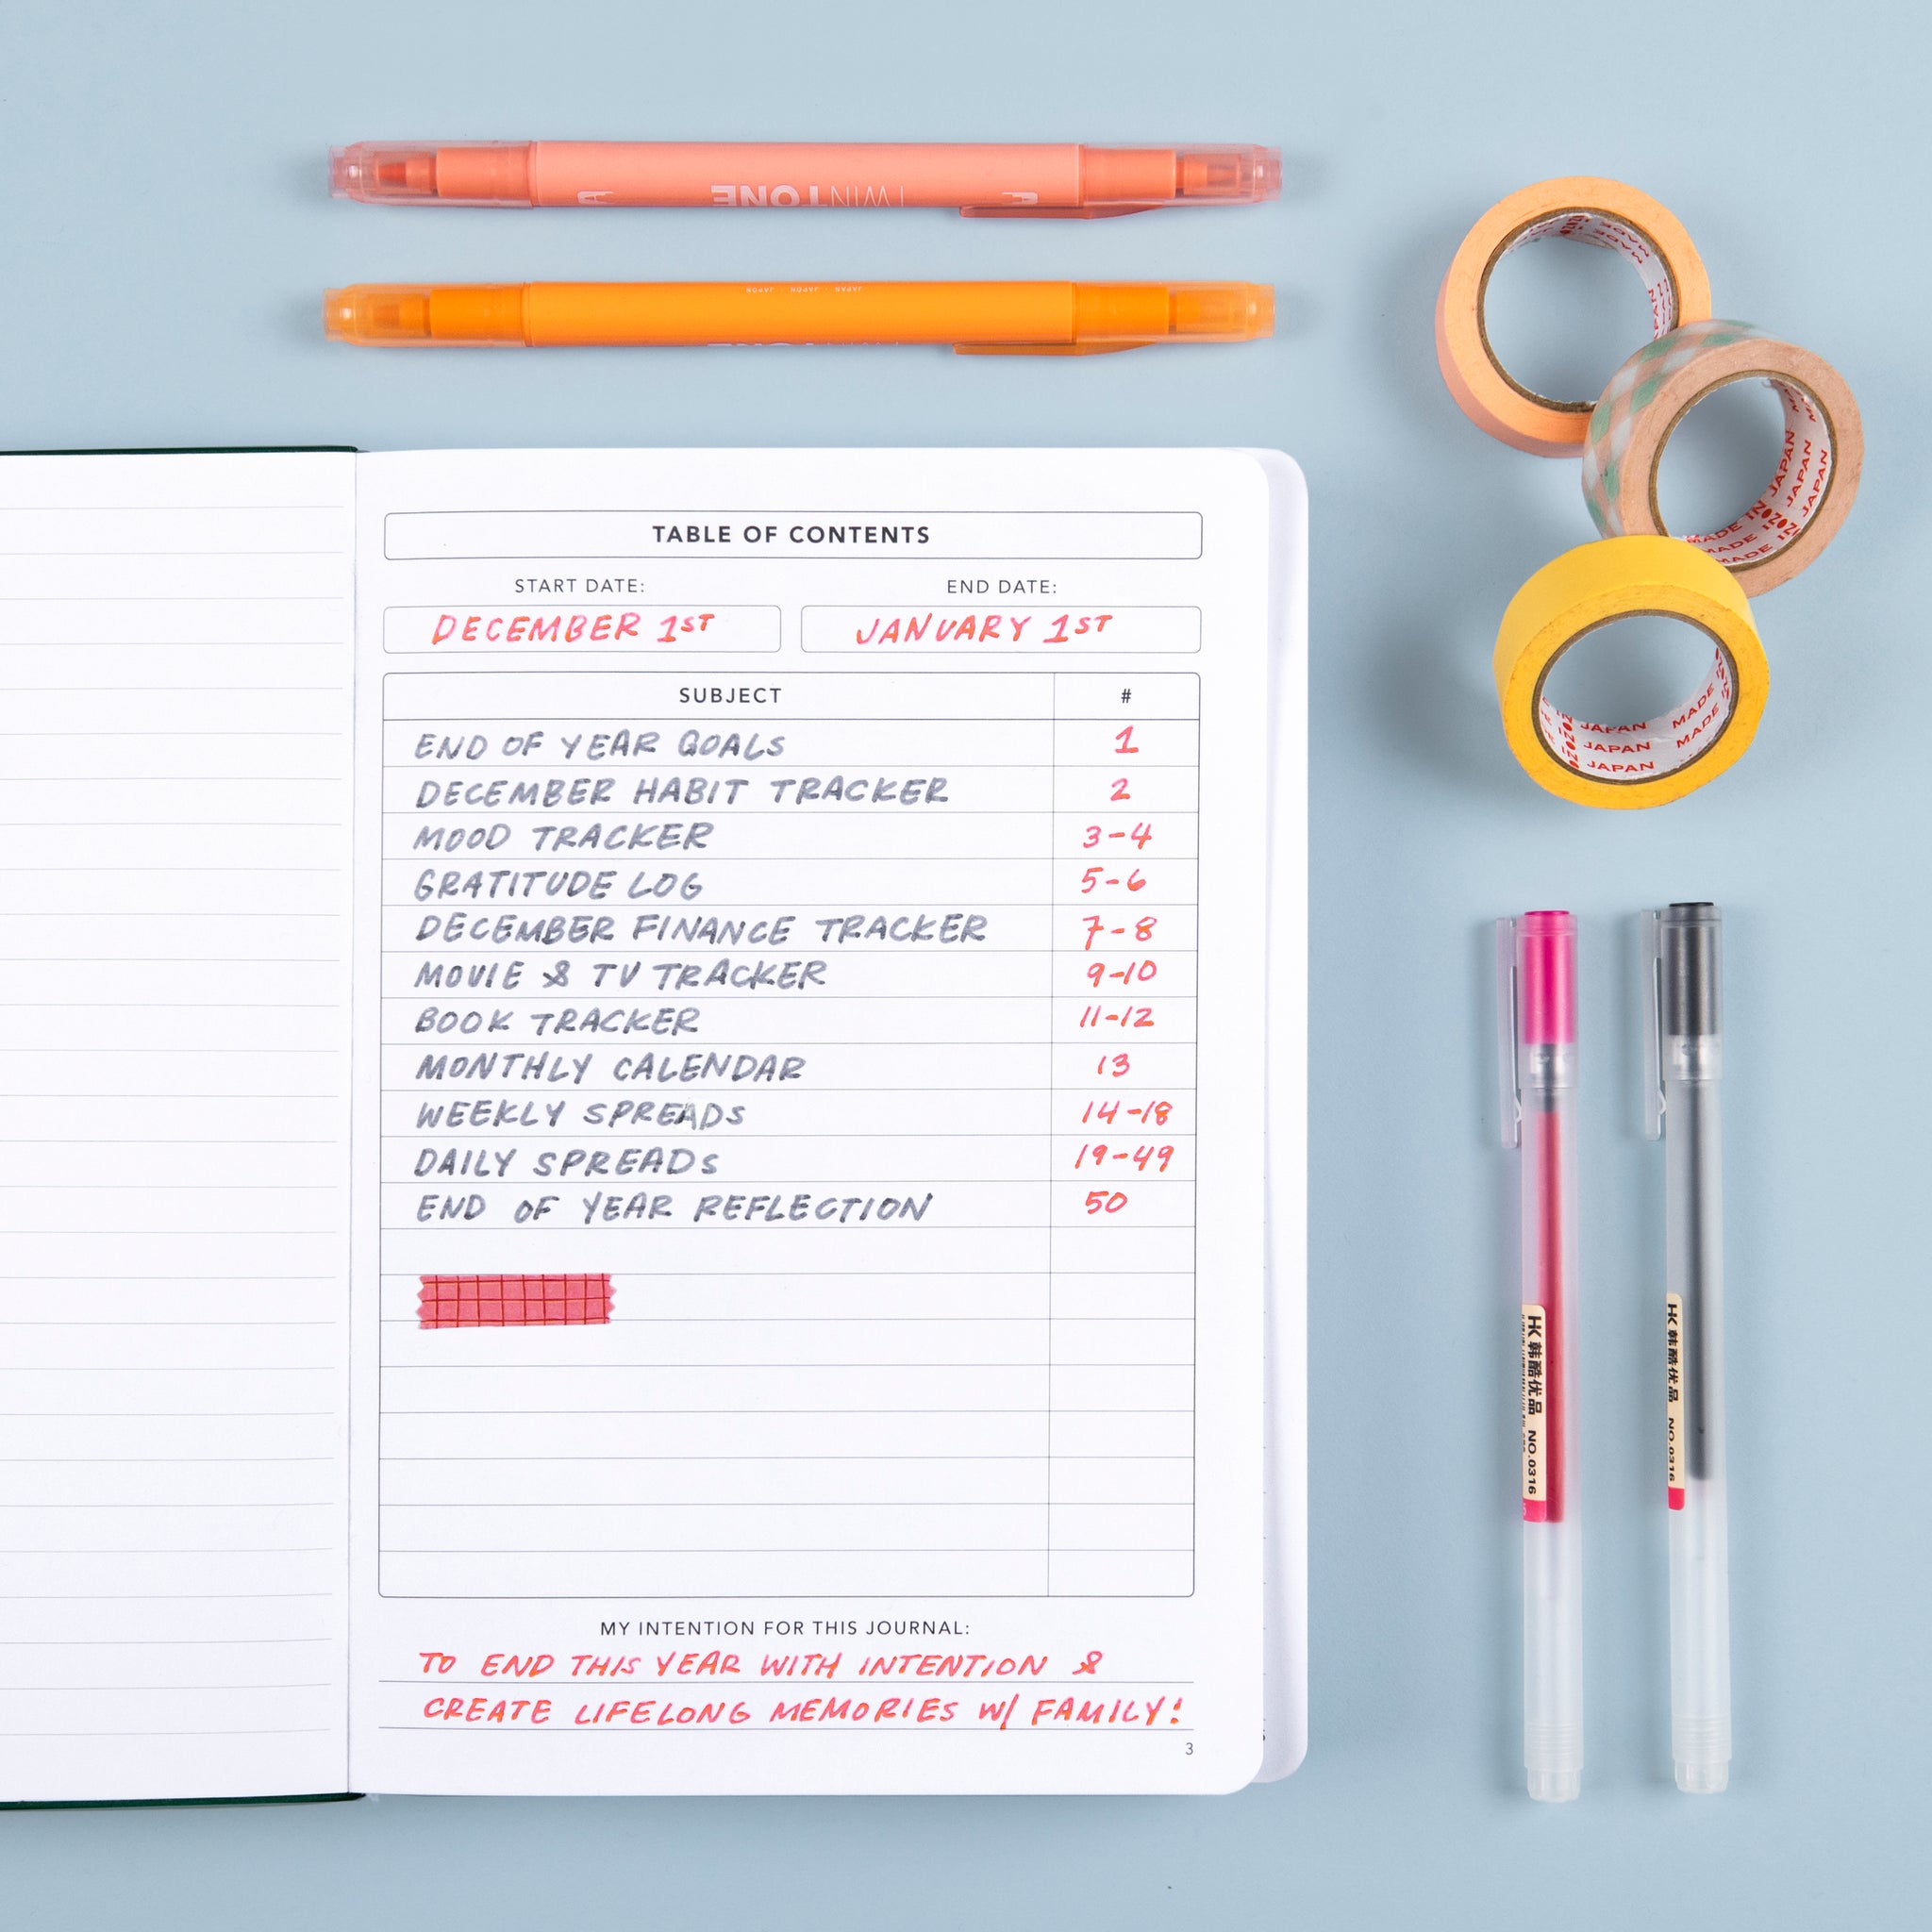 TWINTONE
JAPAN · JAPON · JAPÓN
TABLE OF CONTENTS
START DATE: END DATE:
DECEMBER 1ST JANUARY 1ST
SUBJECT #
END OF YEAR GOALS 1
DECEMBER HABIT TRACKER 2
MOOD TRACKER 3-4
GRATITUDE LOG 5-6
DECEMBER FINANCE TRACKER 7-8
MOVIE & TV TRACKER 9-10
BOOK TRACKER 11-12
MONTHLY CALENDAR 13
WEEKLY SPREADS 14-18
DAILY SPREADS 19-49
END OF YEAR REFLECTION 50
MY INTENTION FOR THIS JOURNAL:
TO END THIS YEAR WITH INTENTION &
CREATE LIFELONG MEMORIES W/ FAMILY!
3
MADE IN JAPAN
MADE IN JAPAN
MADE IN JAPAN
HK 韩酷优品 NO.0316
HK 韩酷优品 NO.0316